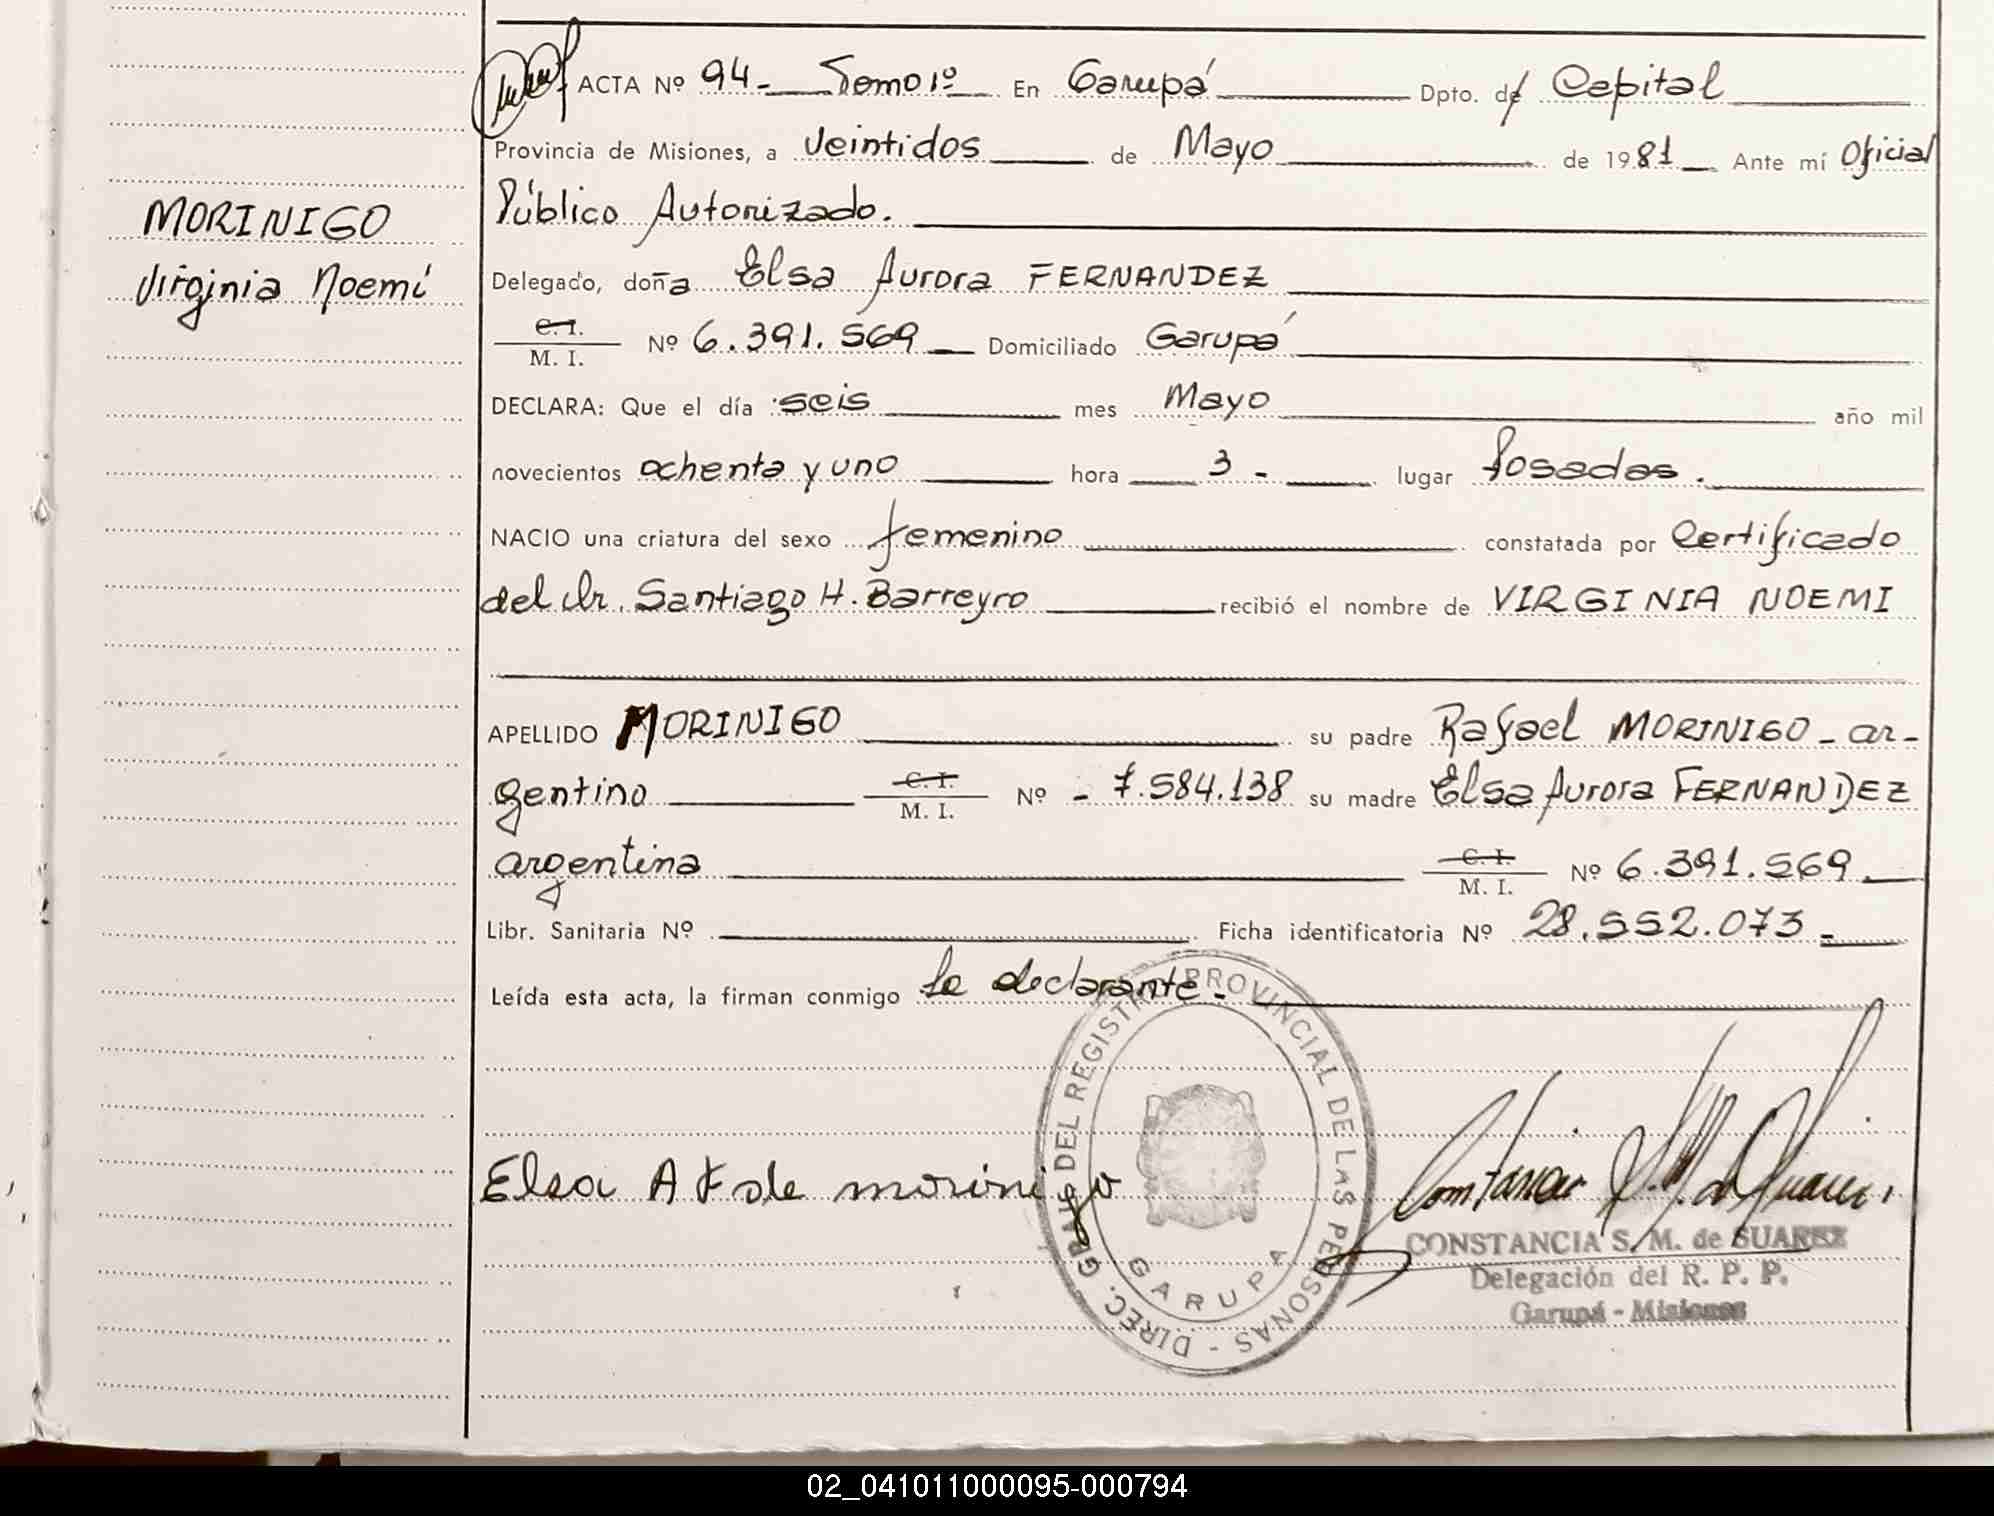 ACTA Nº 94- Tomo 1º En Garupá Dpto. de Capital
Provincia de Misiones, a Veintidos de Mayo de 1981 Ante mí Oficial
Público Autorizado.
MORINIGO
Virginia Noemí
Delegado, doña Elsa Aurora FERNANDEZ
C. I.
M. I.
Nº 6.391.569 Domiciliado Garupá
DECLARA: Que el día seis mes Mayo año mil
novecientos ochenta y uno hora 3- lugar Posadas.
NACIO una criatura del sexo femenino constatada por Certificado
del Dr. Santiago H. Barreyro recibió el nombre de VIRGINIA NOEMI
APELLIDO MORINIGO su padre Rafael MORINIGO - ar-
gentino C. I. M. I. Nº - 7.584.138 su madre Elsa Aurora FERNANDEZ
argentina C. I. M. I. Nº 6.391.569
Libr. Sanitaria Nº Ficha identificatoria Nº 28.552.073-
Leída esta acta, la firman conmigo la declarante-
DIREC. GRAL. DEL REGISTRO PROVINCIAL DE LAS PERSONAS -
GARUPA
Elsa A F de morinigo
Constancia S. M. de Suarez
CONSTANCIA S. M. de SUAREZ
Delegación del R. P. P.
Garupá - Misiones
02_041011000095-000794